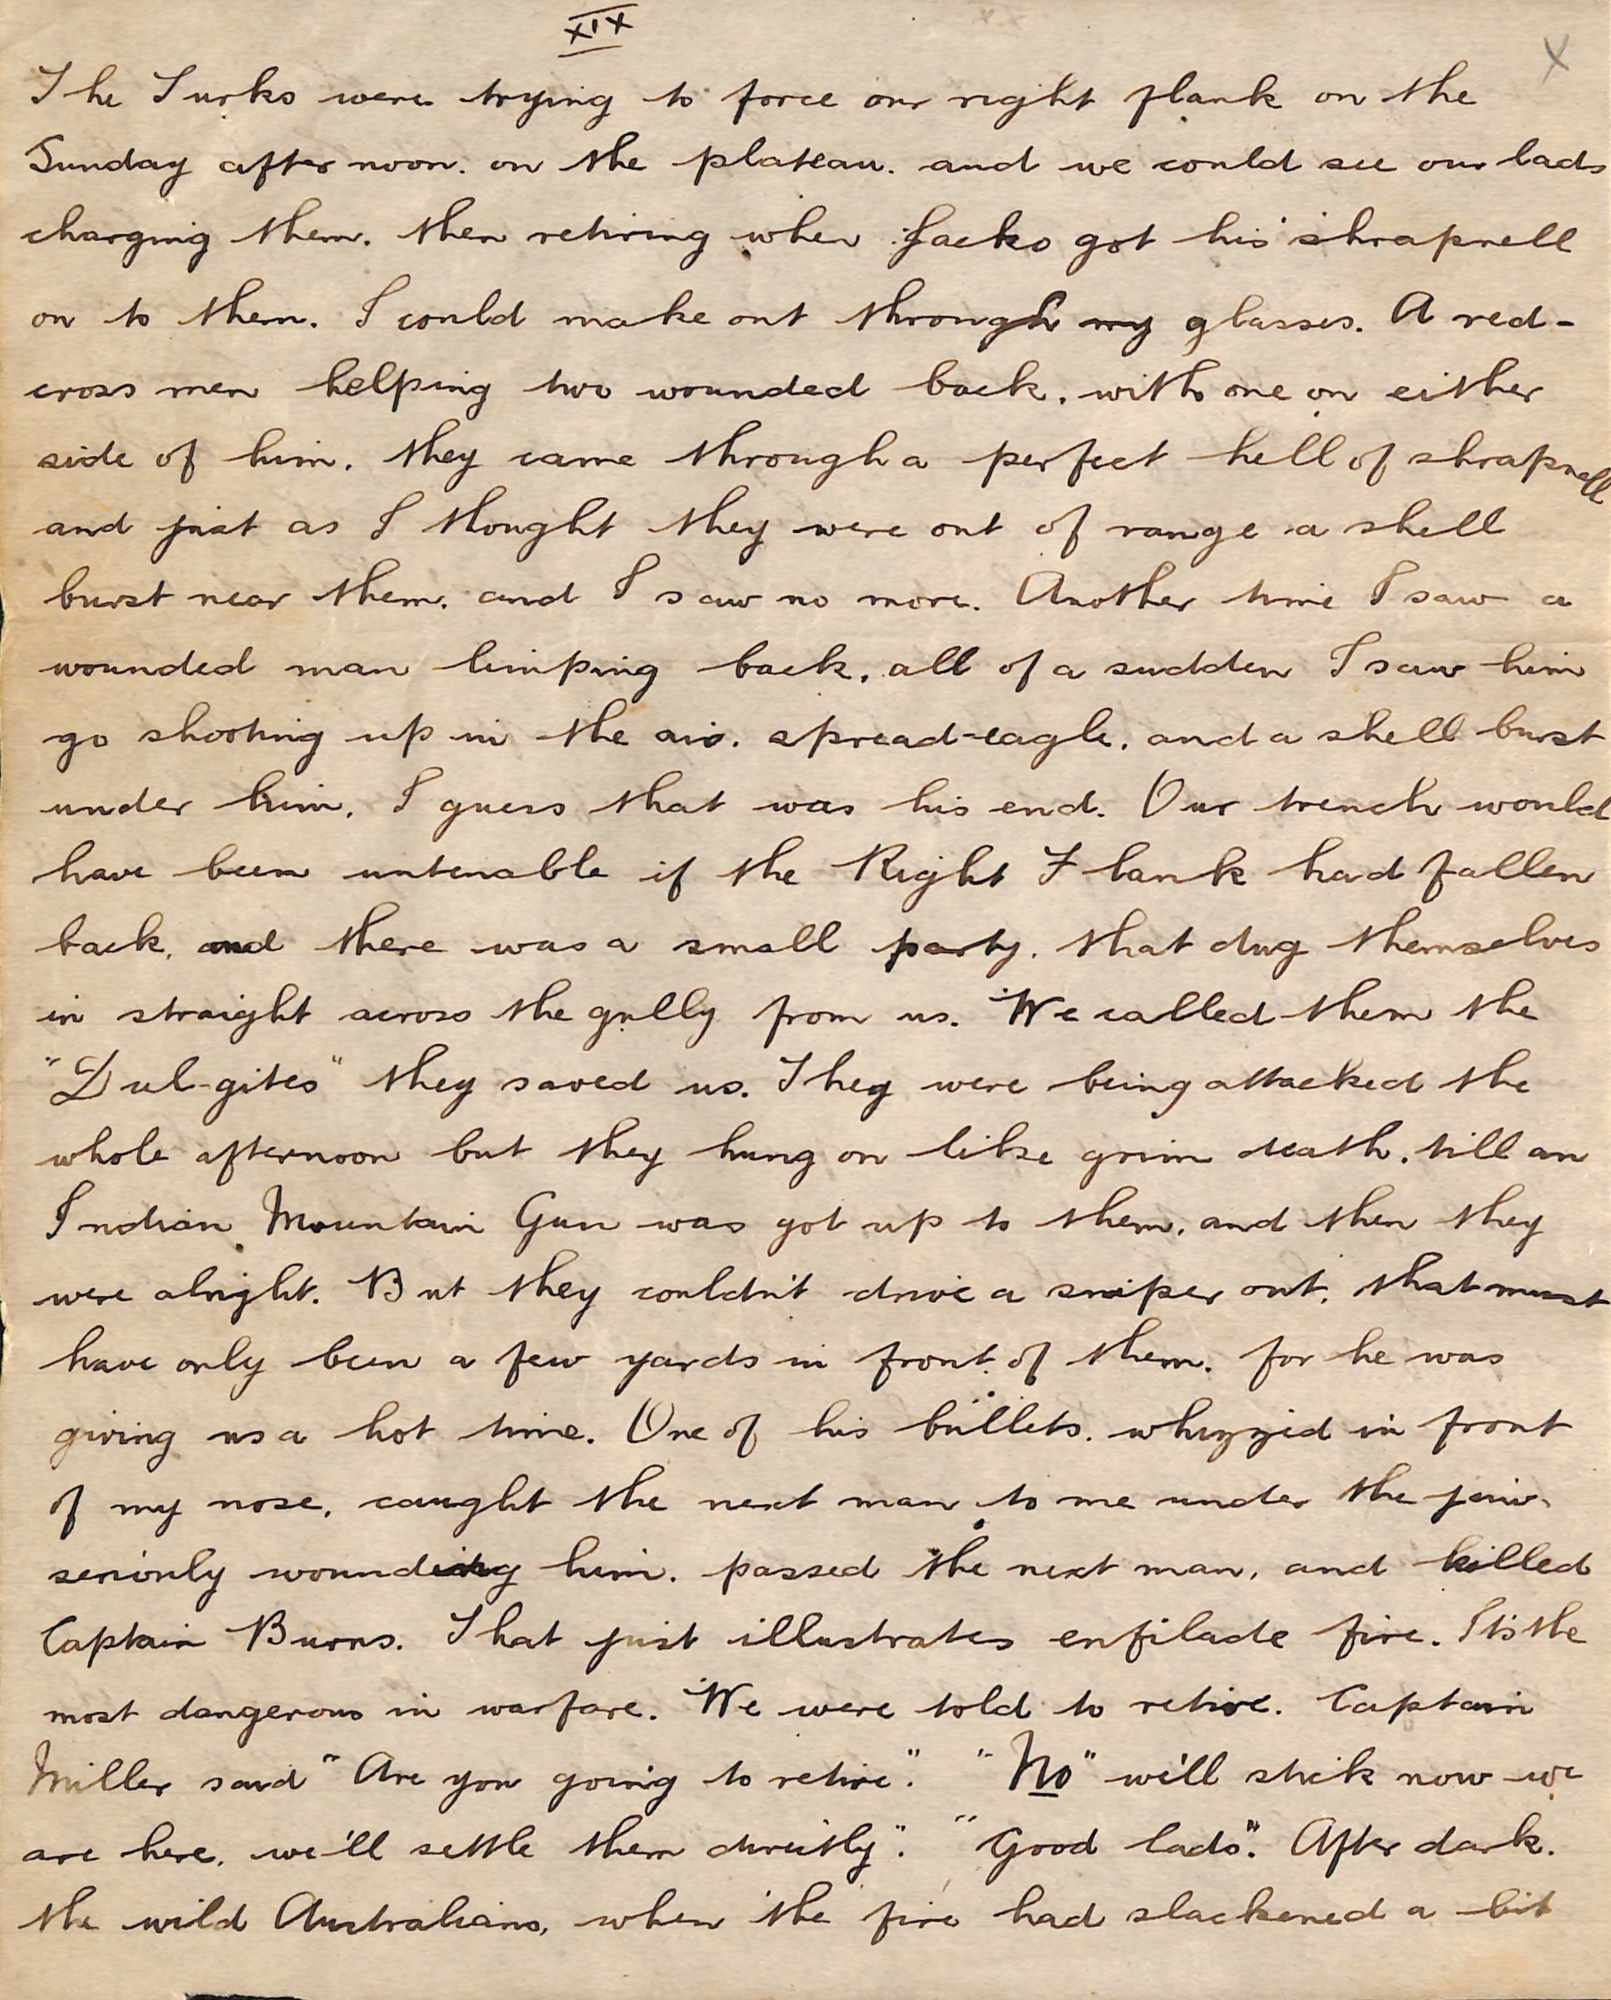 XIX
X
The Turks were trying to force our right flank on the
Sunday afternoon. on the plateau. and we could see our lads
charging them. then retiring when Jacko got his shrapnell
on to them. I could make out through my glasses. A red-
cross men helping two wounded back. with one on either
side of him. they came through a perfect hell of shrapnell
and just as I thought they were out of range a shell
burst near them. and I saw no more. Another time I saw a
wounded man limping back. all of a sudden I saw him
go shooting up in the air. spread-eagle. and a shell burst
under him. I guess that was his end. Our trench would
have been untenable if the Right Flank had fallen
back. and there was a small party. that dug themselves
in straight across the gully from us. We called them the
"Dul-gites" they saved us. They were being attacked the
whole afternoon but they hung on like grim death. till an
Indian Mountain Gun was got up to them. and then they
were alright. But they couldn't drive a sniper out. that must
have only been a few yards in front of them. for he was
giving us a hot time. One of his bullets. whizzid in front
of my nose, caught the next man to me under the jaw.
serionly wounding him. passed the next man. and killed
Captain Burns. That just illustrates enfilade fire. Its the
most dangerous in warfare. We were told to retire. Captain
Miller said "Are you going to retire". "No" we'll stick now we
are here. we'll settle them directly". "Good lads". After dark.
the wild Australians, when the fire had slackened a bit